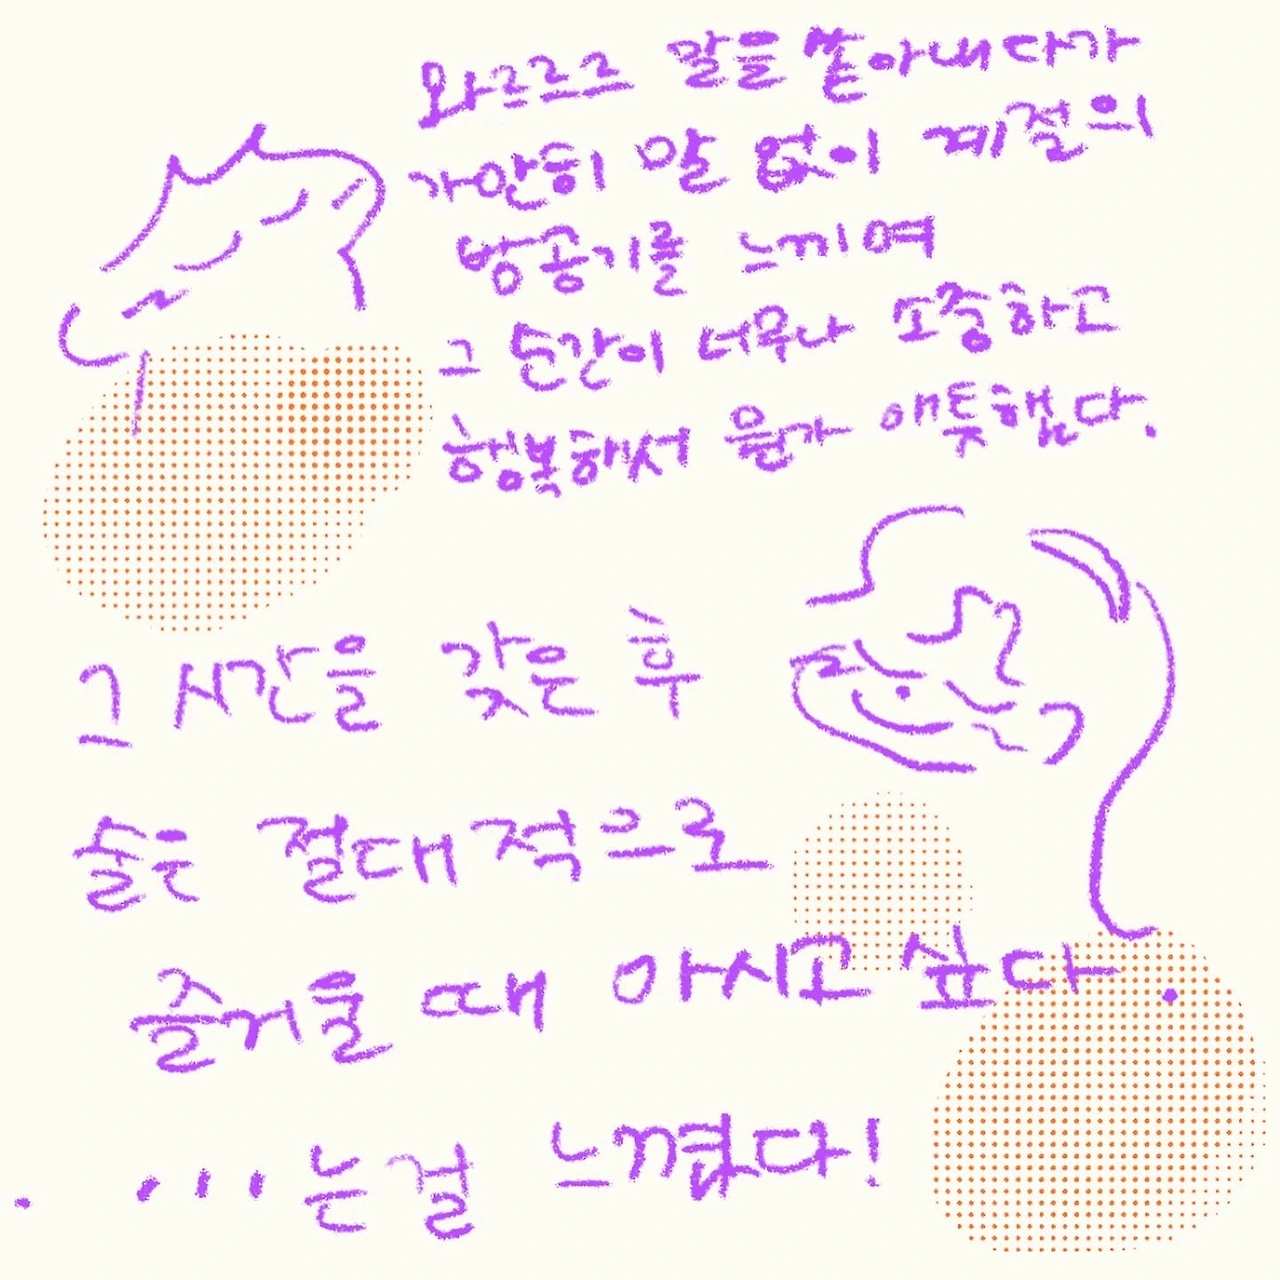 와르르르 말을 쏟아내다가
가만히 말 없이 계절의
방공기를 느끼며
그 순간이 너무나 소중하고
행복해서 뭔가 애틋했다.
그 시간을 갖은 후
술은 절대적으로
즐거울 때 마시고 싶다.
. ...는걸 느꼈다!